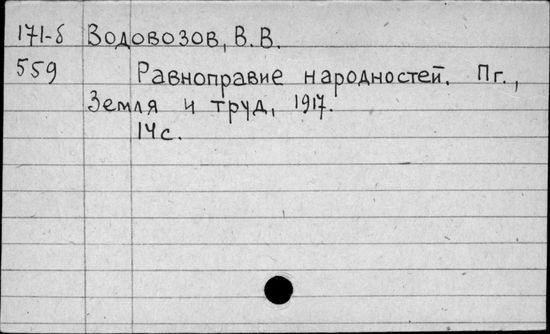 171-б Водовозов, В.В.
559 Равноправие народностей. Пг.,
Земля и труд, 1917.
14 с.